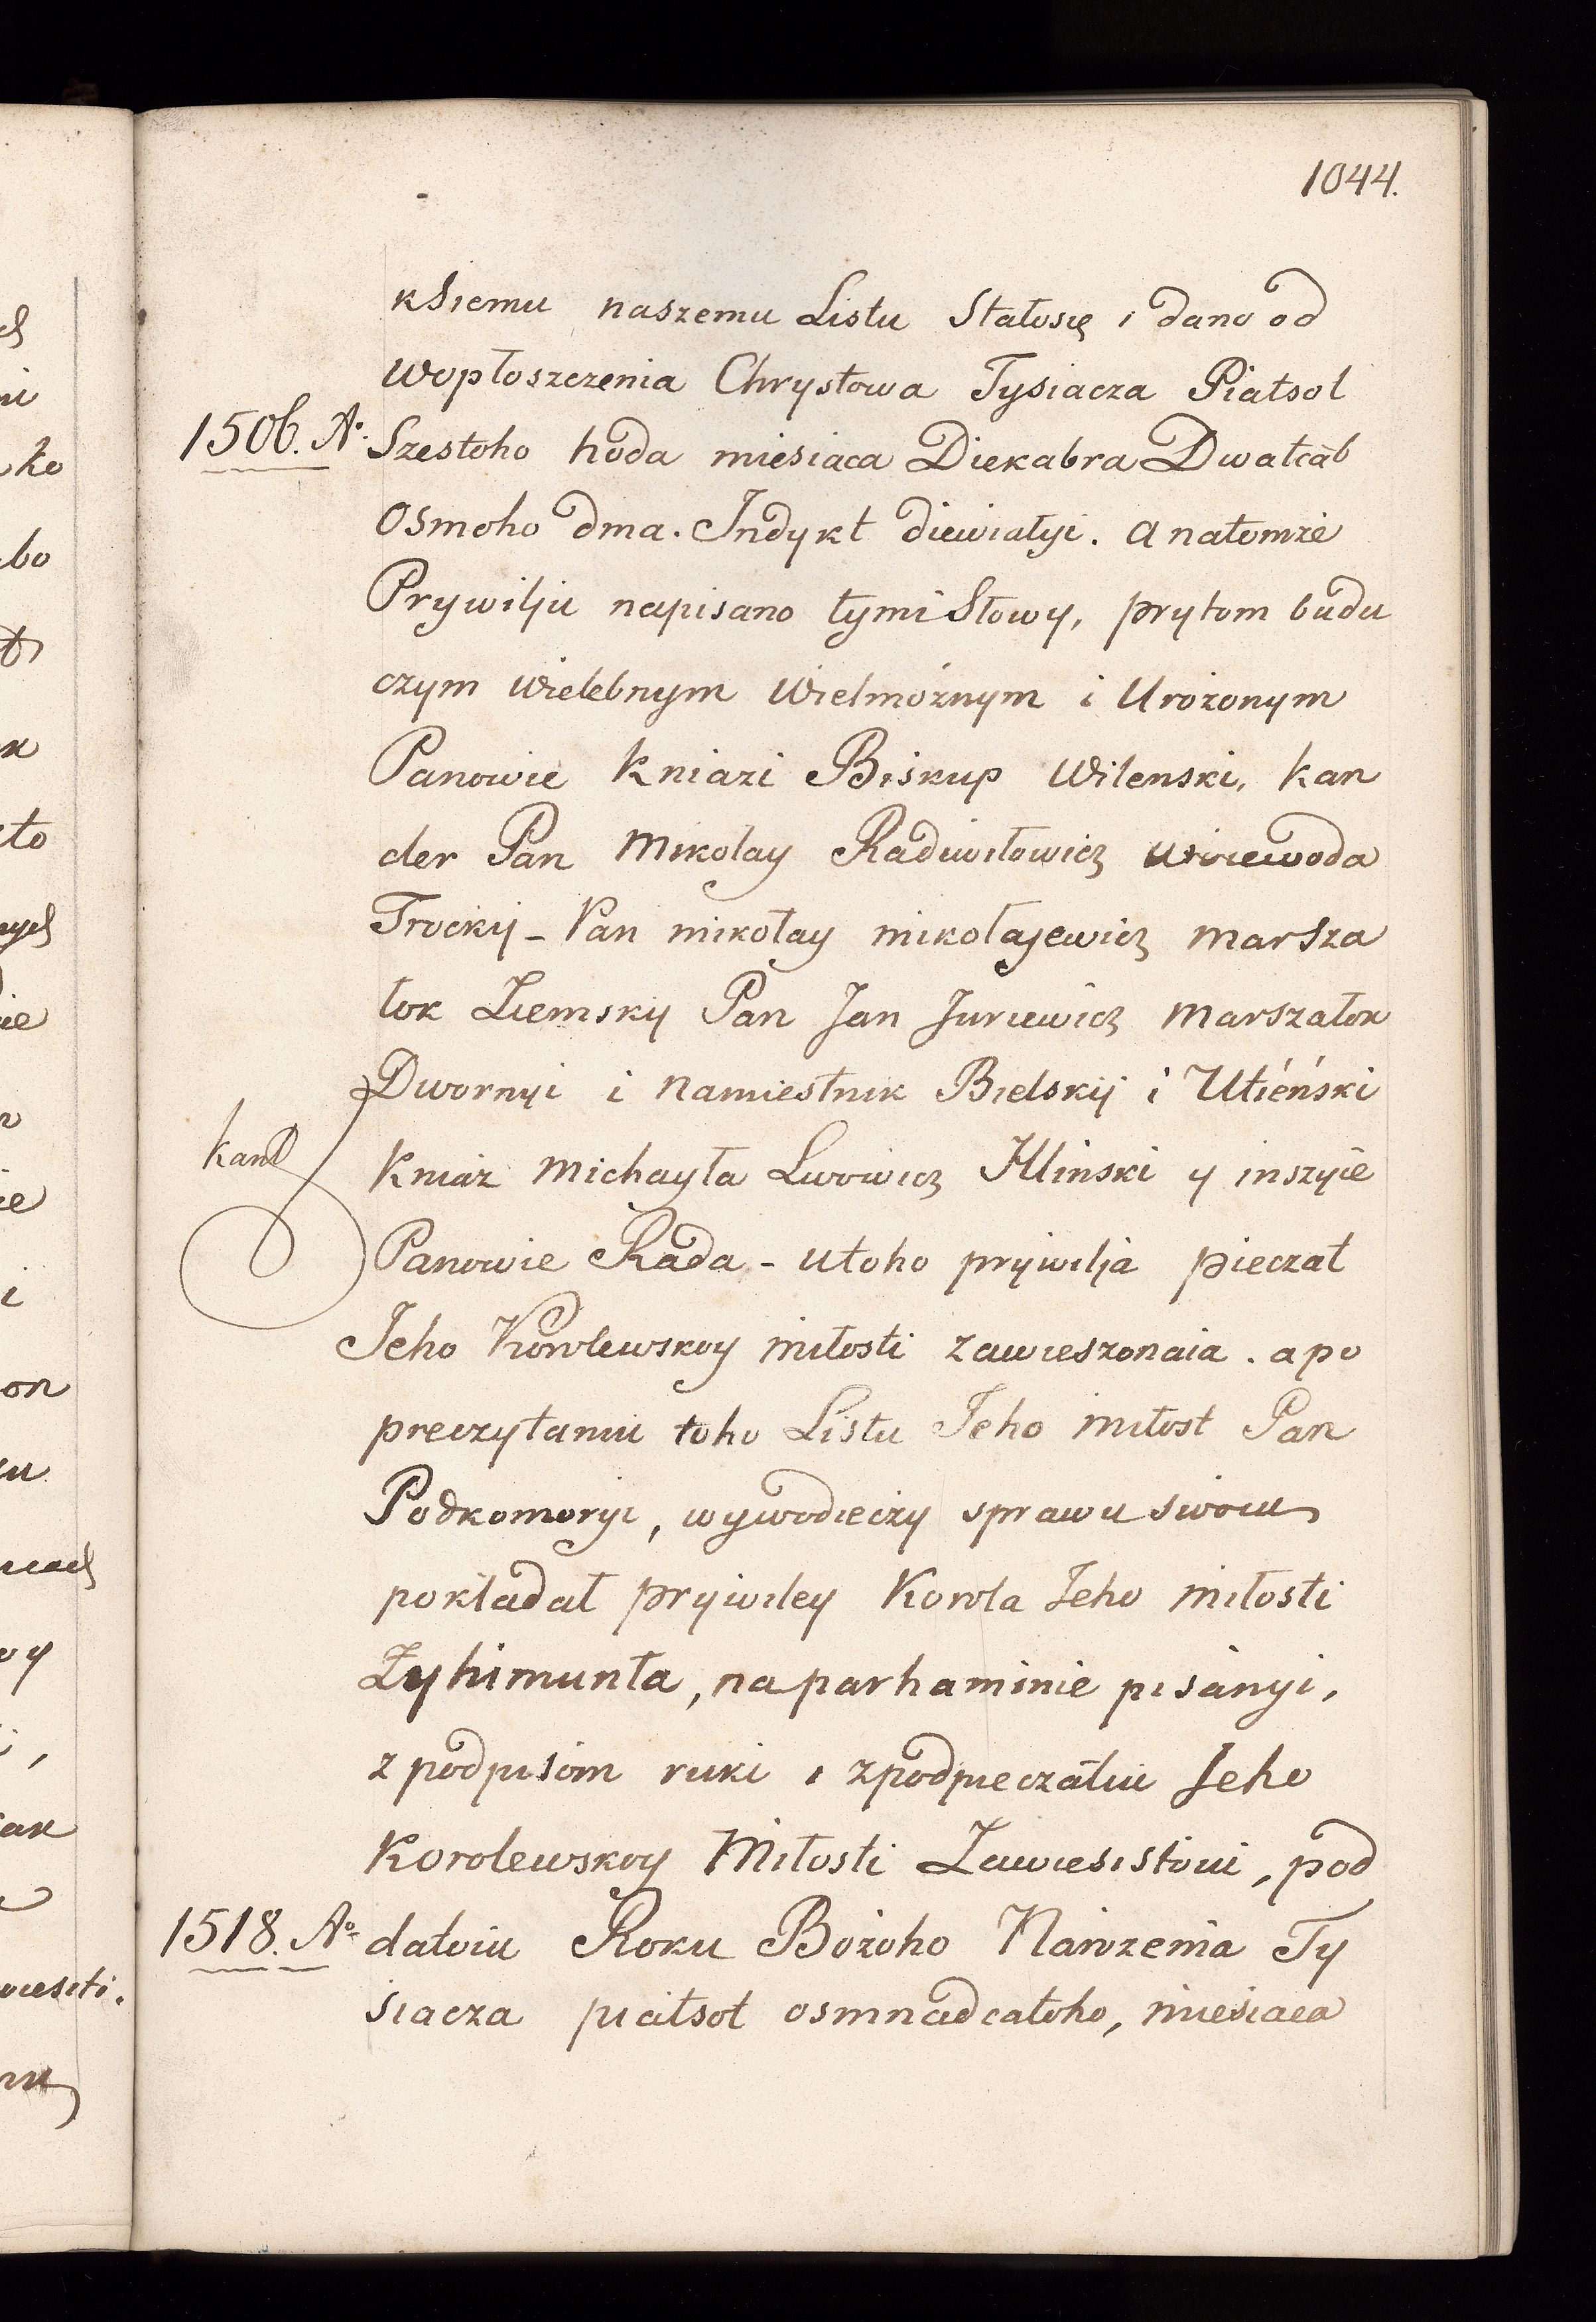 1044.
kSiemu naszemu Listu Stałosię i dano od
wopłoszczenia Chrystowa Tysiacza Piatsot
1506. Aº. Szestoho hoda miesiaca Diekabra Dwatcat
osmoho dma. Indykt diewiatyi. a natomże
Prywilju napisano tymi Słowy, prytom budu
czym wielebnym Wielmożnym i Urożonym
Panowie Kniazi Biskup Wilenski, kan
cler Pan Mikolay Radiwiłowicz woiewoda
Trockij - Pan mikołay mikołajewicz marsza
łok Ziemsky Pan Jan Juriewicz Marszałok
Dwornyi i Namiestnik Bielskij i Utieński
Kniaż Michayła Lwowicz Hlinski y inszyie
Panowie Rada - utoho prijwilja pieczat
Jeho Korolewskoy miłosti zawieszonaia. a po
preczytaniu toho Listu Jeho miłost Pan
Podkomoryi, wywodieczy sprawu swoiu
pokładał pryiwiley Korola Jeho miłosti
Zyhimunta, na parhaminie pisanyi,
z podpisom ruki i zpodpieczatiu Jeho
Korolewskoy Miłosti Zawiesistoiu, pod
1518. Aº. datoiu Roku Bożoho Narozenia Ty
siacza piatsot osmnadcatoho, miesiaca